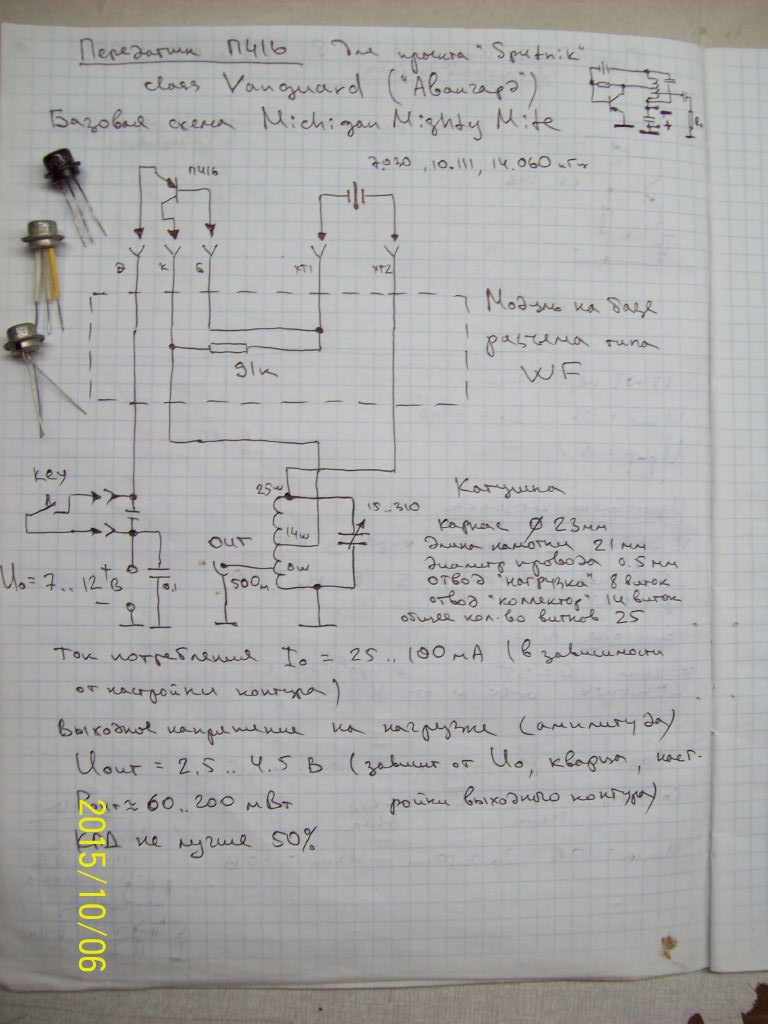 Передатчик П416 для проекта "Sputnik"
class Vanguard ("Авангард")
Базовая схема Michigan Mighty Mite
П416
7.030, 10.111, 14.060 кГц
Э К Б XT1 XT2
Модуль на базе
разъема типа
WF
91к
KEY
25w
15..310
14w
OUT
8w
50 Ом
U₀ = 7.. 12 В
+
0,1
–
Катушка
каркас ф 23 мм
длина намотки 21 мм
диаметр провода 0.5 мм
отвод "нагрузка" 8 виток
отвод "коллектор" 14 виток
общее кол-во витков 25
Ток потребления I₀ = 25..100 мА (в зависимости
от настройки контура)
Выходное напряжение на нагрузке (амплитуда)
Uout = 2.5 .. 4.5 В (зависит от U₀, кварца, наст-
ройки выходного контура)
Pout ≈ 60..200 мВт
КПД не лучше 50%
2015/10/06